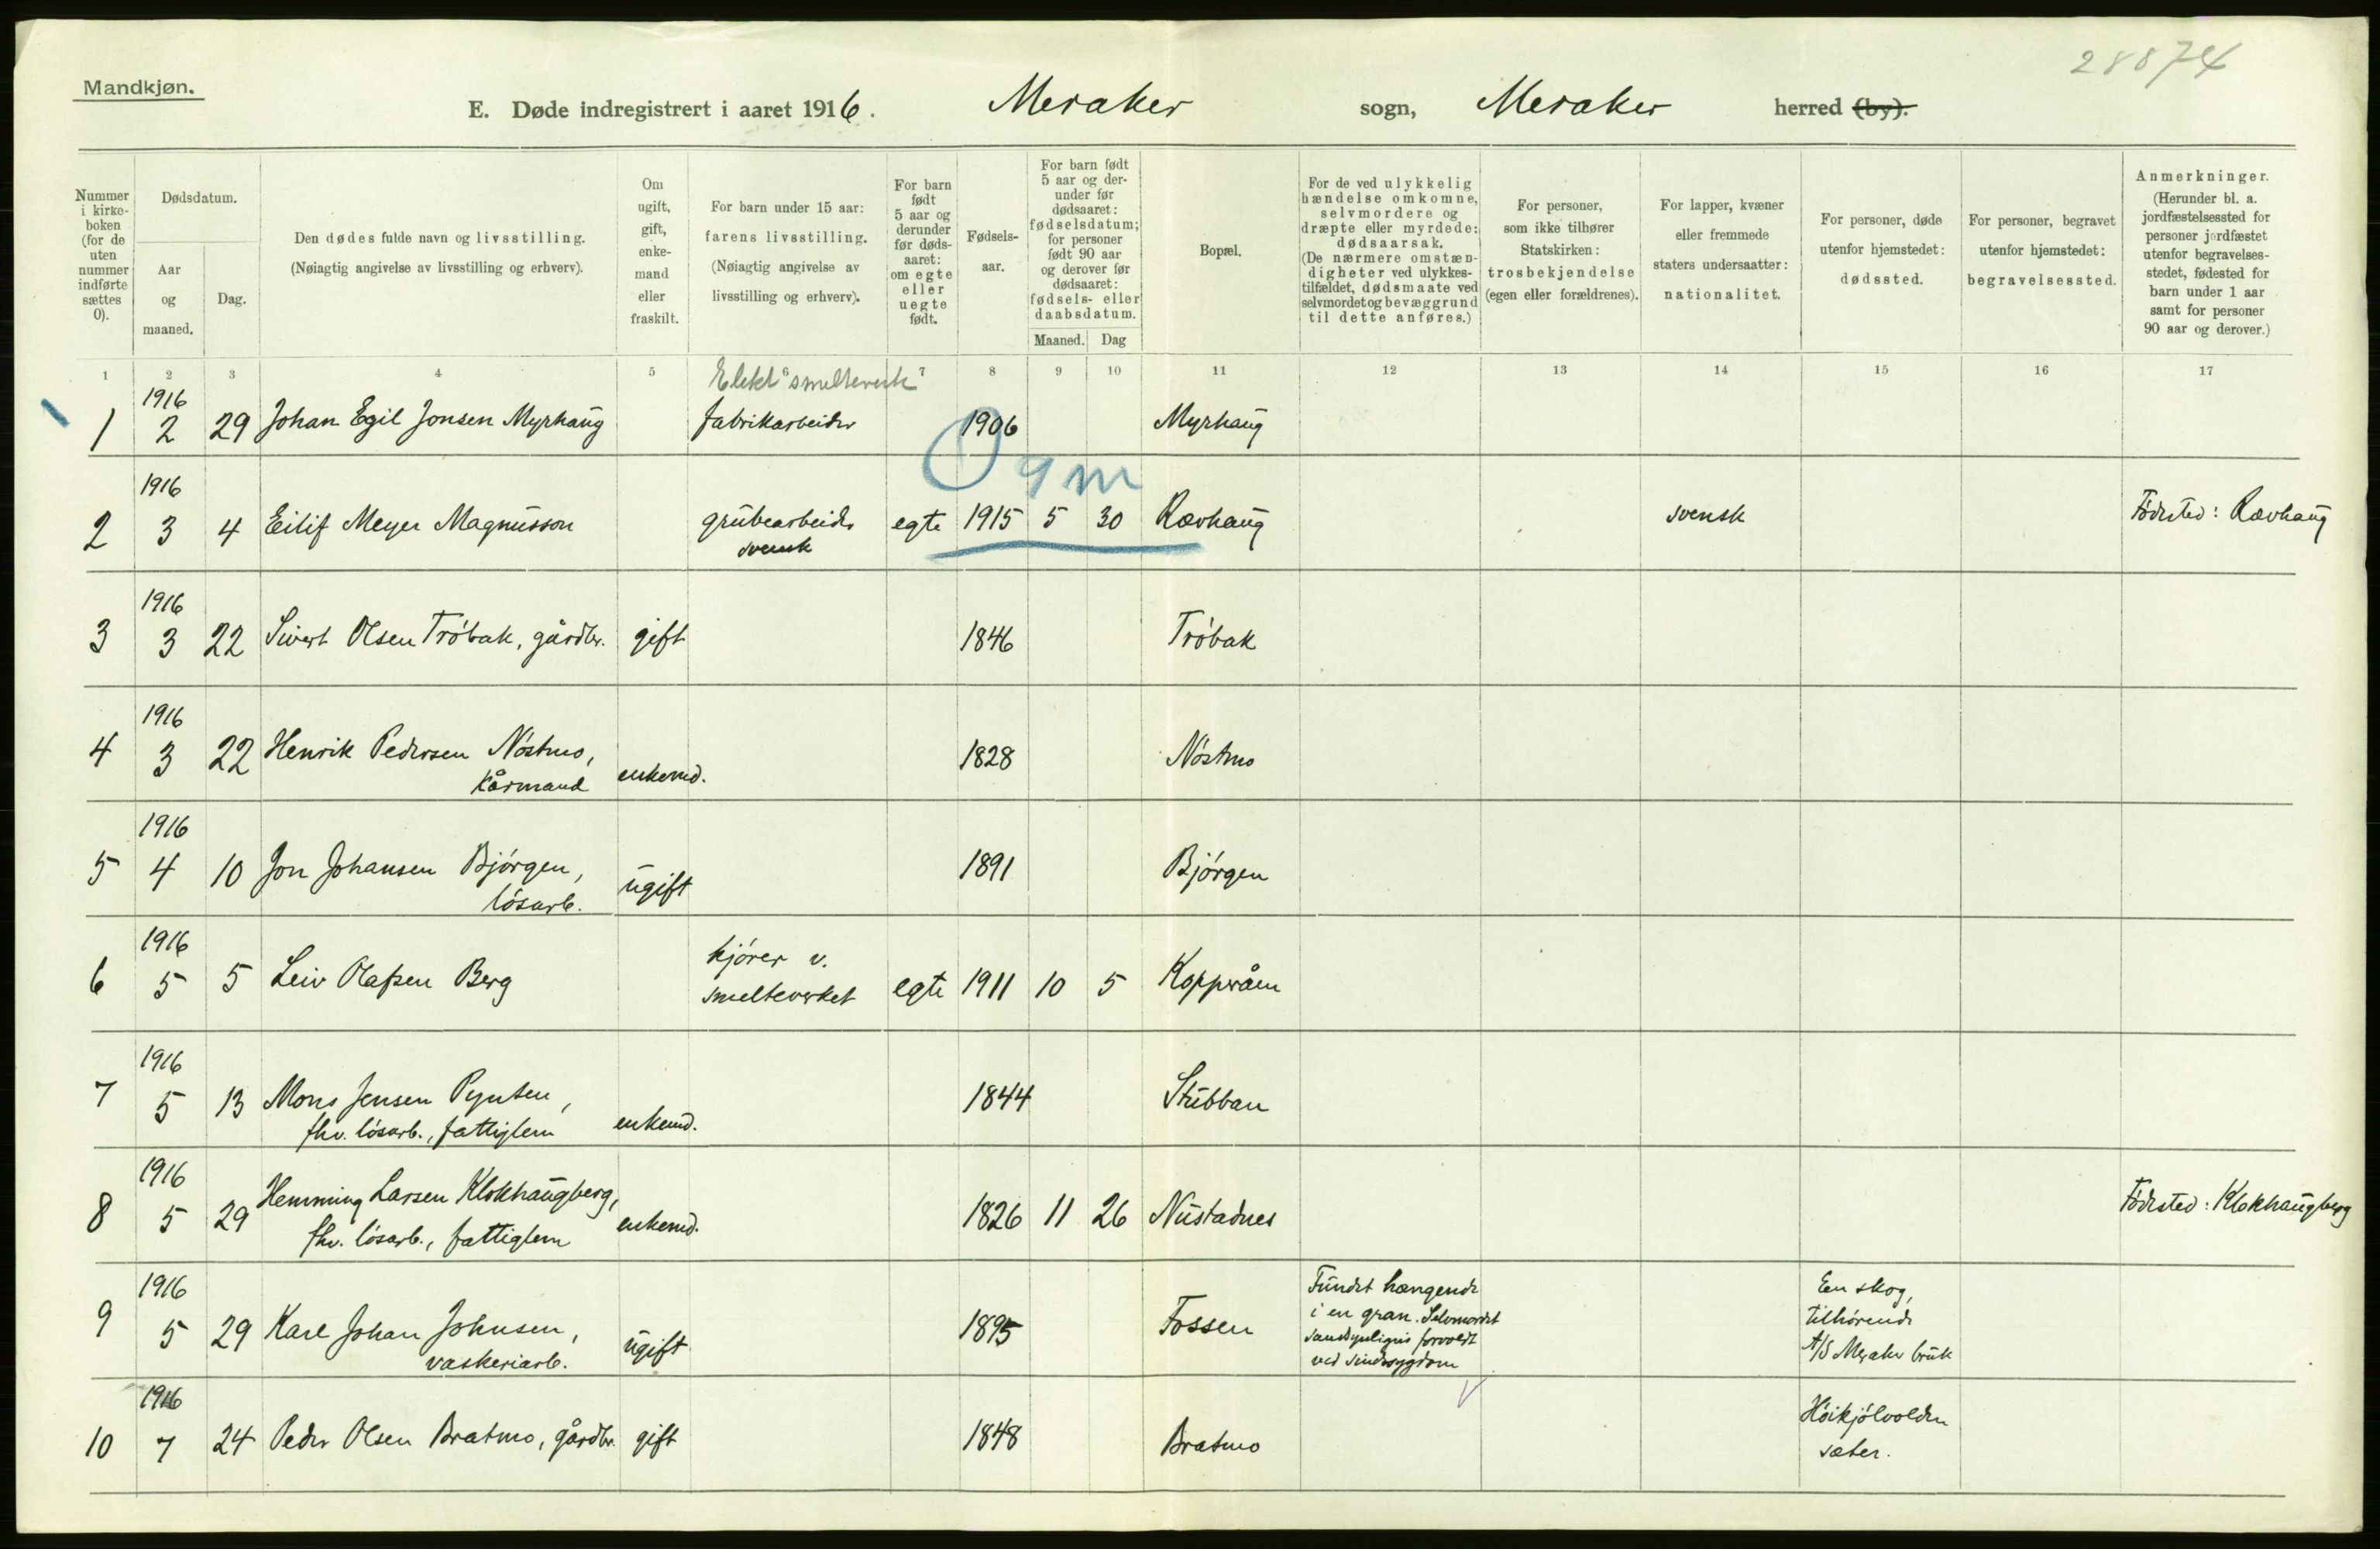 28874
Mandkjøn.
E. Døde indregistrert i aaret 1916. Meraker sogn, Meraker herred (by).
Nummer
i kirke-
boken
(for de
uten
nummer
indførte
sættes
0).
Dødsdatum.
Aar
og
maaned.
Dag.
Den dødes fulde navn og livsstilling.
(Nøiagtig angivelse av livsstilling og erhverv).
Om
ugift,
gift,
enke-
mand
eller
fraskilt.
For barn under 15 aar:
farens livsstilling.
(Nøiagtig angivelse av
livsstilling og erhverv).
For barn
født
5 aar og
derunder
før døds-
aaret:
om egte
eller
uegte
født.
Fødsels-
aar.
For barn født
5 aar og der-
under før
dødsaaret:
fødselsdatum;
for personer
født 90 aar
og derover før
dødsaaret:
fødsels- eller
daabsdatum.
Maaned. Dag
Bopæl.
For de ved ulykkelig
hændelse omkomne,
selvmordere og
dræpte eller myrdede:
dødsaarsak.
(De nærmere omstæn-
digheter ved ulykkes-
tilfældet, dødsmaate ved
selvmordet og bevæggrund
til dette anføres.)
For personer,
som ikke tilhører
Statskirken:
trosbekjendelse
(egen eller forældrenes).
For lapper, kvæner
eller fremmede
staters undersaatter:
nationalitet.
For personer, døde
utenfor hjemstedet:
dødssted.
For personer, begravet
utenfor hjemstedet:
begravelsessted.
Anmerkninger.
(Herunder bl. a.
jordfæstelsessted for
personer jordfæstet
utenfor begravelses-
stedet, fødested for
barn under 1 aar
samt for personer
90 aar og derover.)
1 2 3 4 5 6 7 8 9 10 11 12 13 14 15 16 17
Elekt smelteverk
1916
1 2 29 Johan Egil Jonsen Myrhaug fabrikarbeider 1906 Myrhaug
1 9 m
1916
2 3 4 Eilif Meyer Magnusson grubearbeider egte 1915 5 30 Rævhaug svensk Födested: Rævhaug
svensk
1916
3 3 22 Sivert Olsen Tröbak, gårdbr. gift 1846 Tröbak
1916
4 3 22 Henrik Pedersen Nöstmo, enkemd. 1828 Nöstmo
kårmand
1916
5 4 10 Jon Johansen Björgen, ugift 1891 Björgen
lösarb.
1916
kjörer v.
6 5 5 Leiv Olafsen Berg smelteverket egte 1911 10 5 Kopperåen
1916
7 5 13 Mons Jensen Pynten, enkemd. 1844 Stubban
fhv. lösarb., fattiglem
1916
8 5 29 Hemming Larsen Klokhaugberg, enkemd. 1826 11 26 Nustadnes Födested: Klokhaugberg
fhv. lösarb., fattiglem
1916
9 5 29 Karl Johan Johnsen, ugift 1895 Fossen
vaskeriarb.
Fundet hængende
i en gran. Selvmordet
sandsynligvis forvoldt
ved sindssygdom
En skog,
tilhörende
A/S Meraker bruk
1916
10 7 24 Peder Olsen Bratmo, gårdbr. gift 1848 Bratmo
Höikjölvolden
sæter.